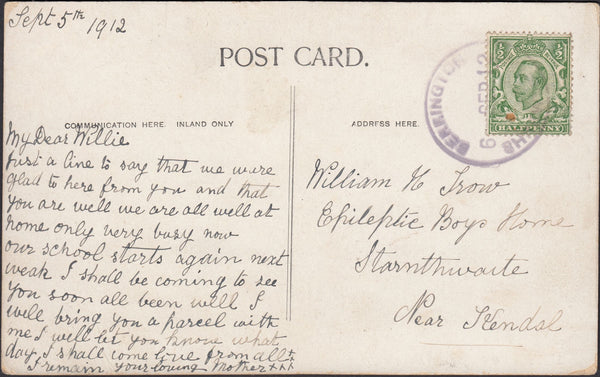 Sept 5th 1912
POST CARD.
COMMUNICATION HERE. INLAND ONLY
ADDRESS HERE.
My Dear Willie
Just a line to say that we were
glad to here from you and that
you are well we are all well at
home only very busy now
our school starts again next
weak I shall be coming to see
you soon all been well I
well bring you a parcel with
me I will let you know what
day I shall come love from all
I remain your loving Mother xxx
William H Trow
Epileptic Boys Home
Starnthwaite
Near Kendal
BERRINGTON
6 SEP 12
½ ½
HALFPENNY